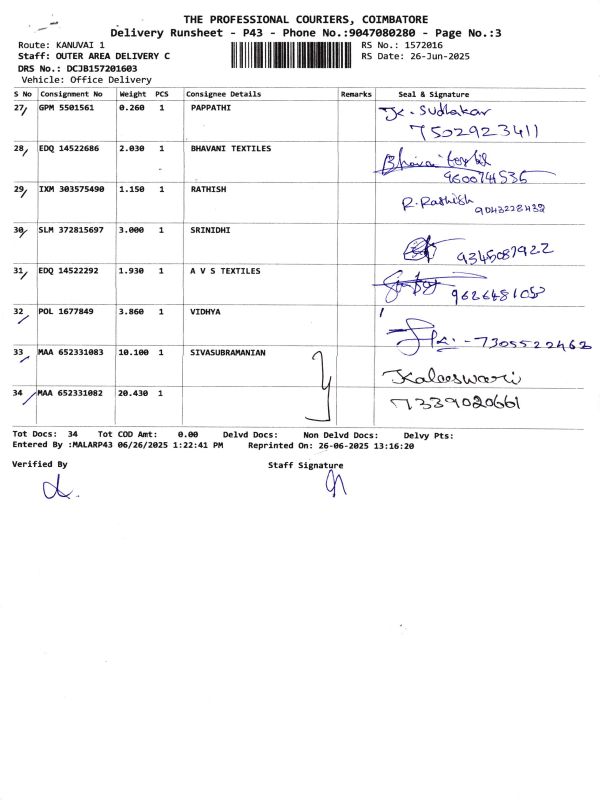 THE PROFESSIONAL COURIERS, COIMBATORE
Delivery Runsheet - P43 - Phone No.:9047080280 - Page No.:3
Route: KANUVAI 1 RS No.: 1572016
Staff: OUTER AREA DELIVERY C RS Date: 26-Jun-2025
DRS No.: DCJB157201603
Vehicle: Office Delivery
S No Consignment No Weight PCS Consignee Details Remarks Seal & Signature
27 GPM 5501561 0.260 1 PAPPATHI Sudhakar
7502923411
28 EDQ 14522686 2.030 1 BHAVANI TEXTILES Bhavai textil
29 IXM 303575490 1.150 1 RATHISH R. Rathish 9043228432
30 SLM 372815697 3.000 1 SRINIDHI 9345087922
31 EDQ 14522292 1.930 1 A V S TEXTILES
32 POL 1677849 3.860 1 VIDHYA 7305522463
33 MAA 652331083 10.100 1 SIVASUBRAMANIAN Kaleeswari
34 MAA 652331082 20.430 1 7339020661
Tot Docs: 34 Tot COD Amt: 0.00 Delvd Docs: Non Delvd Docs: Delvy Pts:
Entered By :MALARP43 06/26/2025 1:22:41 PM Reprinted On: 26-06-2025 13:16:20
Verified By Staff Signature